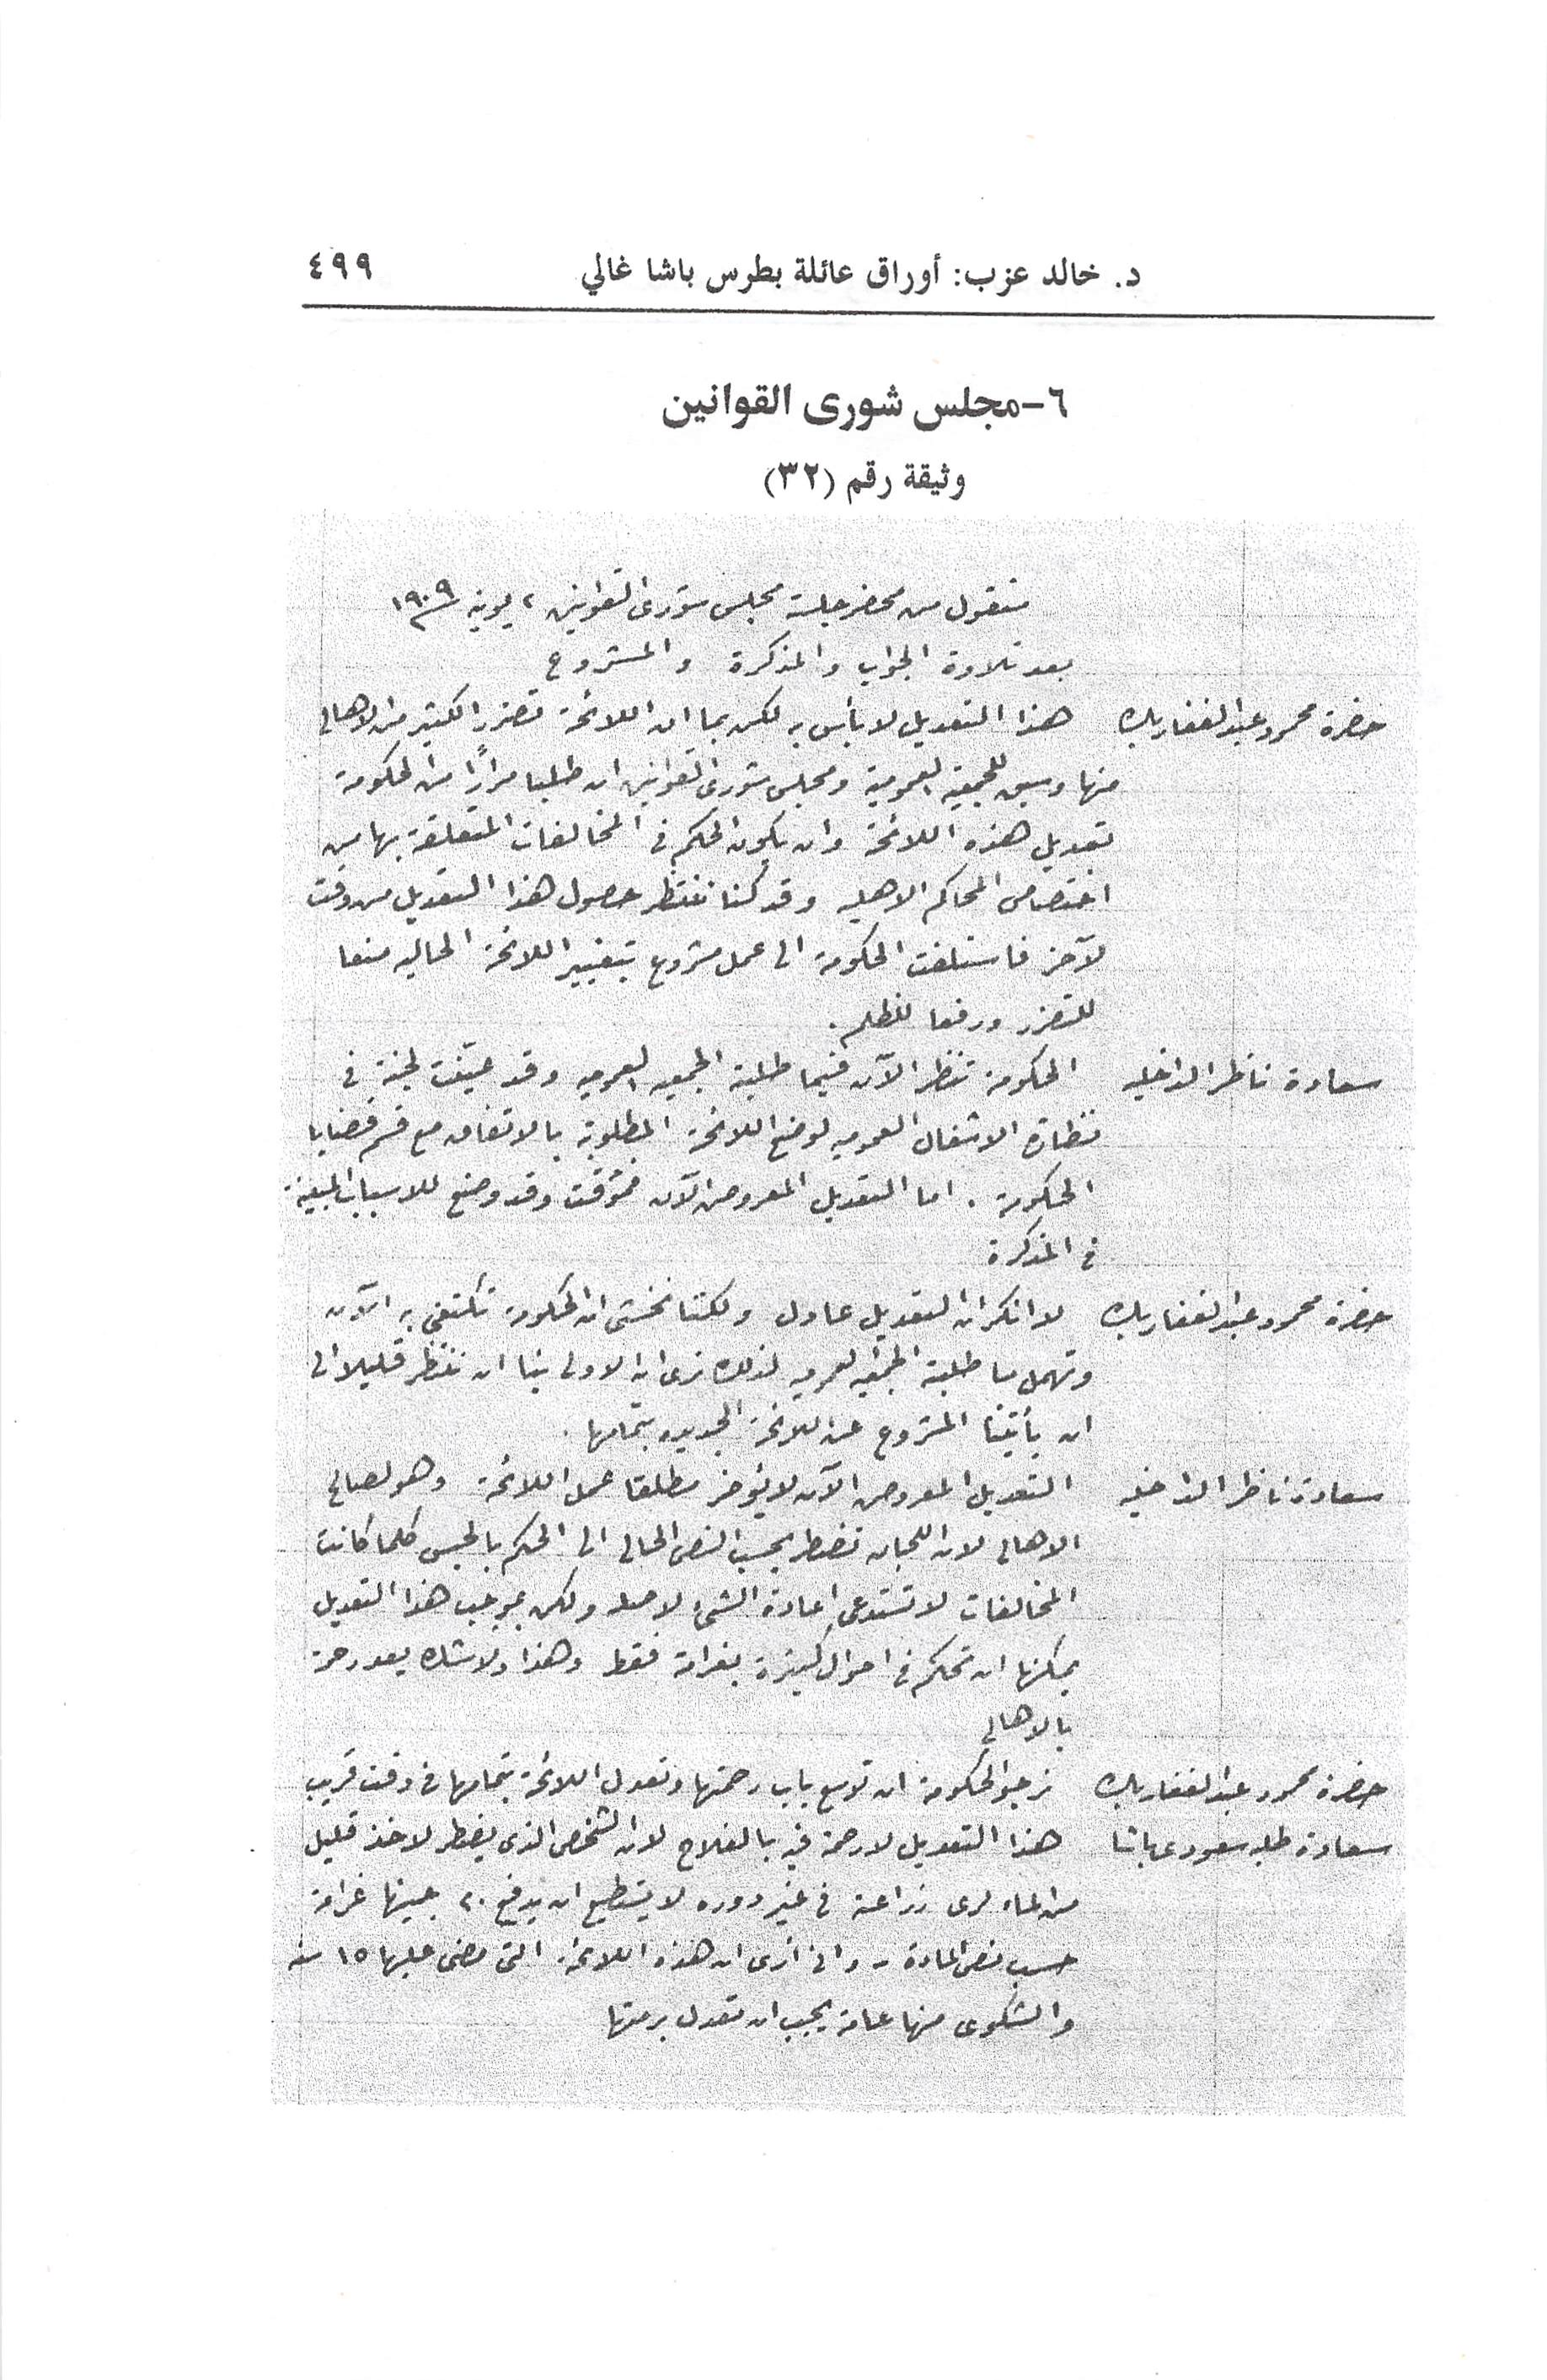 د. خالد عزب: أوراق عائلة بطرس باشا غالي ٤٩٩
٦-مجلس شورى القوانين
وثيقة رقم (٣٢)
منقول من محضر جلسة مجلس شورى القوانين ٢ يونيه ١٩٠٩
بعد تلاوة الجواب والمذكرة والمشروع
حضرة محمود عبد الغفار بك هذا التعديل لا بأس به لكن بما ان اللائحة تضرر الكثير من الاهالى
منها وسبق للجمعية العمومية ومجلس شورى القوانين ان طلبا مرارًا من الحكومة
تعديل هذه اللائحة وان يكون الحكم فى المخالفات المتعلقة بها من
اختصاص المحاكم الاهليه وقد كنا ننتظر حصول هذا التعديل من وقت
لآخر فاستلفت الحكومة الى عمل مشروع بتغيير اللائحة الحاليه منعا
للتضرر ورفعا للظلم.
سعادة ناظر الداخليه الحكومة تنظر الآن فيما طلبته الجمعيه العموميه وقد عينت لجنة فى
نظارة الاشغال العموميه لوضع اللائحة المطلوبة بالاتفاق مع قسم قضايا
الحكومة. اما التعديل المعروض الآن فمؤقت وقد وضع للاسباب المبينة
فى المذكرة
حضرة محمود عبد الغفار بك لا انكر ان التعديل عادل ولكننا نخشى ان الحكومة تكتفى به الآن
وتهمل ما طلبته الجمعيه العموميه لذلك نرى ان الاولى بنا ان ننتظر قليلا الى
ان يأتينا المشروع عن اللائحة الجديده بتمامها.
سعادة ناظر الداخليه التعديل المعروض الآن لا يؤخر مطلقا عمل اللائحة وهو لصالح
الاهالى لان اللجان تضطر بحسب النص الحالى الى الحكم بالحبس كلما كانت
المخالفات لا تستدعى اعادة الشىء لاصله ولكن بموجب هذا التعديل
يمكنها ان تحكم فى احوال كثيرة بغرامة فقط وهذا ولا شك يعد رحمة
بالاهالي
حضرة محمود عبد الغفار بك نرجو الحكومة ان توسع باب رحمتها وتعدل اللائحة بتمامها فى وقت قريب
سعادة طلبه سعودى باشا هذا التعديل لا رحمة فيه بالفلاح لان الشخص الذى يضطر لاخذ قليل
من الماء لرى زراعته فى غير دوره لا يستطيع ان يدفع ٢٠ جنيها غرامة
حسب نص المادة - وانى ارى ان هذه اللائحة التى مضى عليها ١٥ سنه
والشكوى منها عامة يجب ان تعدل برمتها